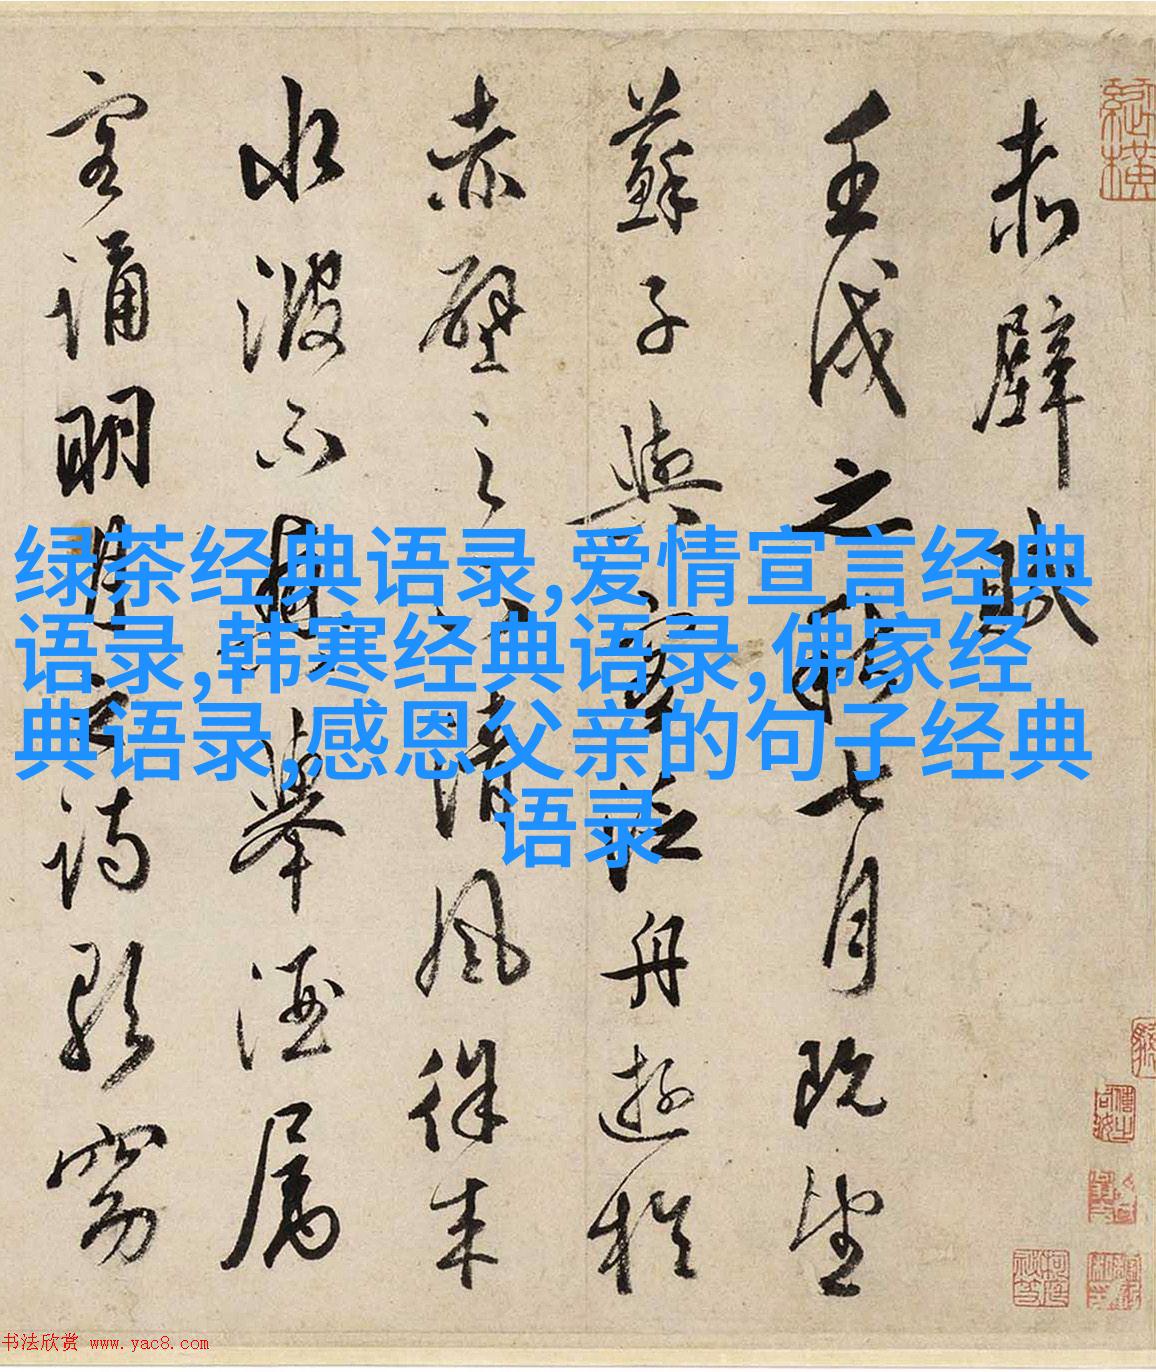 赤壁賦
壬戌之秋七月既望
蘇子與客泛舟遊於
赤壁之下清風徐來
水波不興舉酒屬
客誦明月之詩歌窈
绿茶经典语录,爱情宣言经典
语录,韩寒经典语录,佛家经
典语录,感恩父亲的句子经典
语录
书法欣赏 www.yac8.com